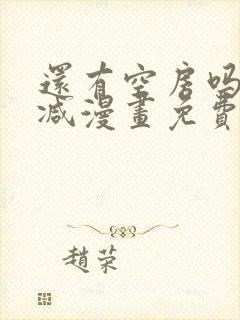 還有空房吗
减漫畫免費
趙荣